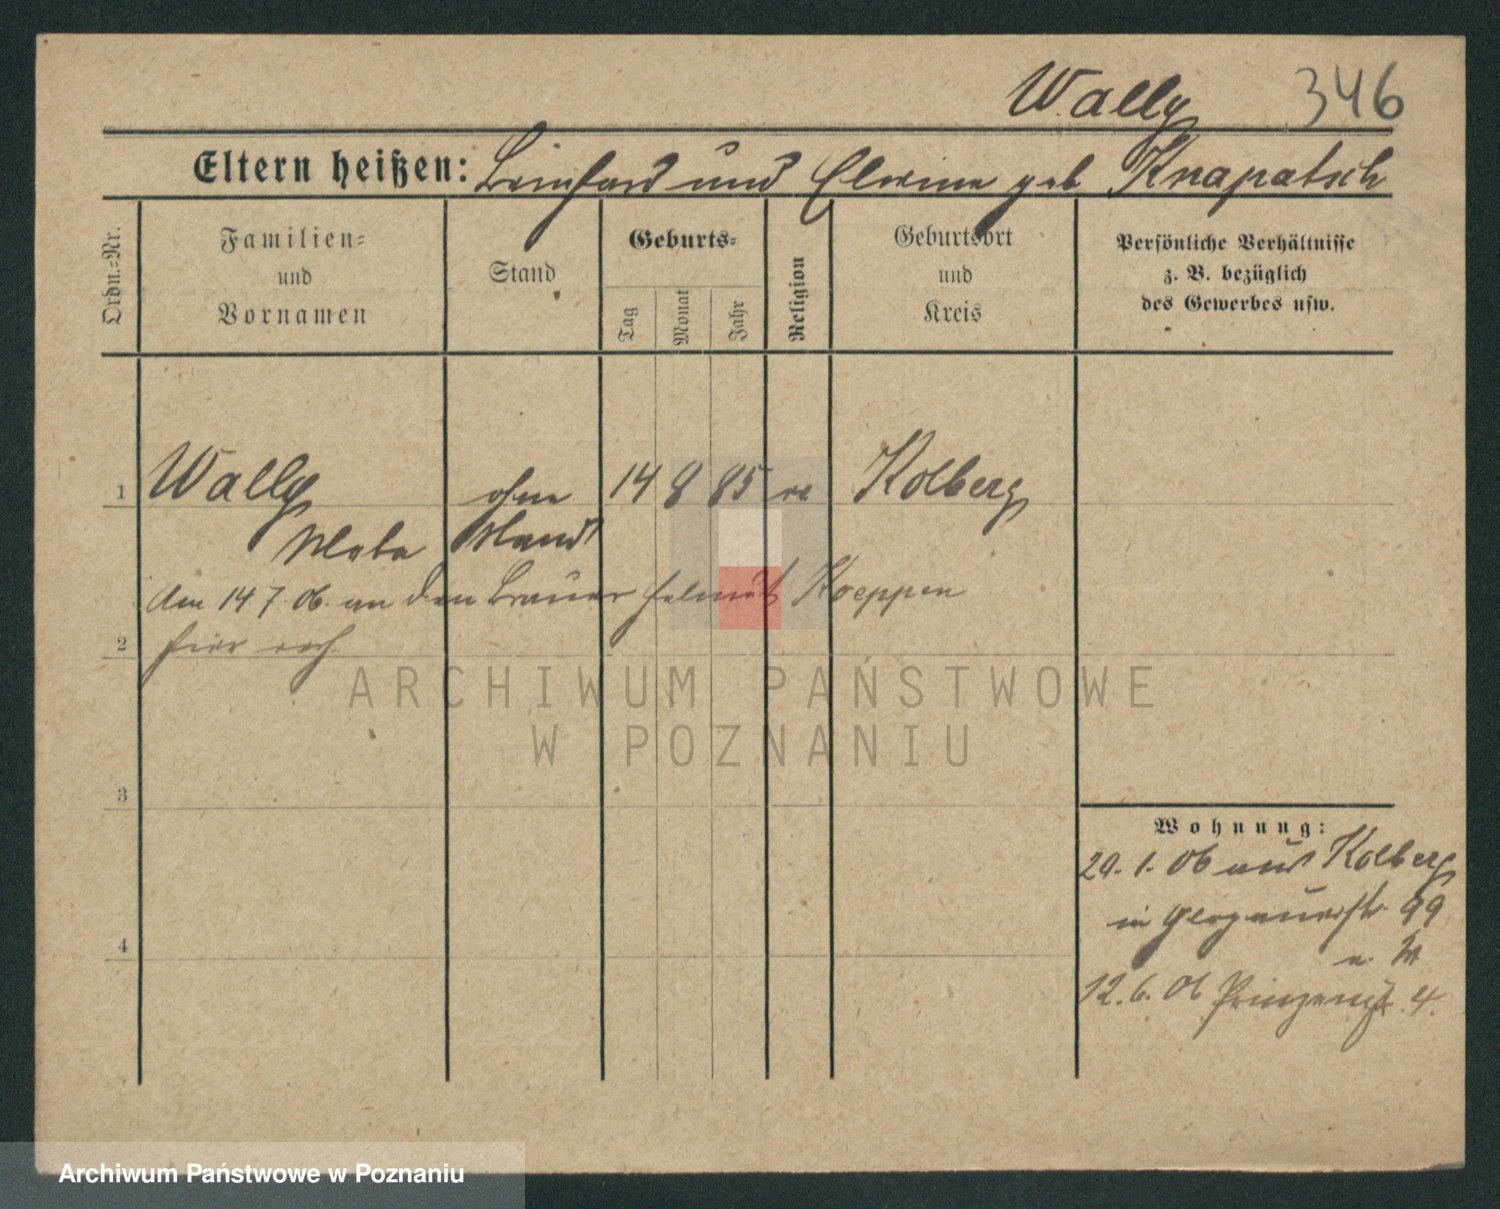 Wally 346
Eltern heißen: Leinhard und Elwine geb Knapatsch
Ordn.-Nr.
Familien-
und
Vornamen
Stand
Geburts-
Tag
Monat
Jahr
Religion
Geburtsort
und
Kreis
Persönliche Verhältnisse
z. B. bezüglich
des Gewerbes usw.
1 Wally ohne 14 8 85 Kolberg
Meta Stand
Am 14 7 06 an den Brauer Helmut Koeppen
2 hier
3
4
ARCHIWUM PAŃSTWOWE
W POZNANIU
Wohnung:
29. 1. 06 aus Kolberg
in Glogauerstr 99
12. 6. 06 Prinzenstr. 4.
Archiwum Państwowe w Poznaniu